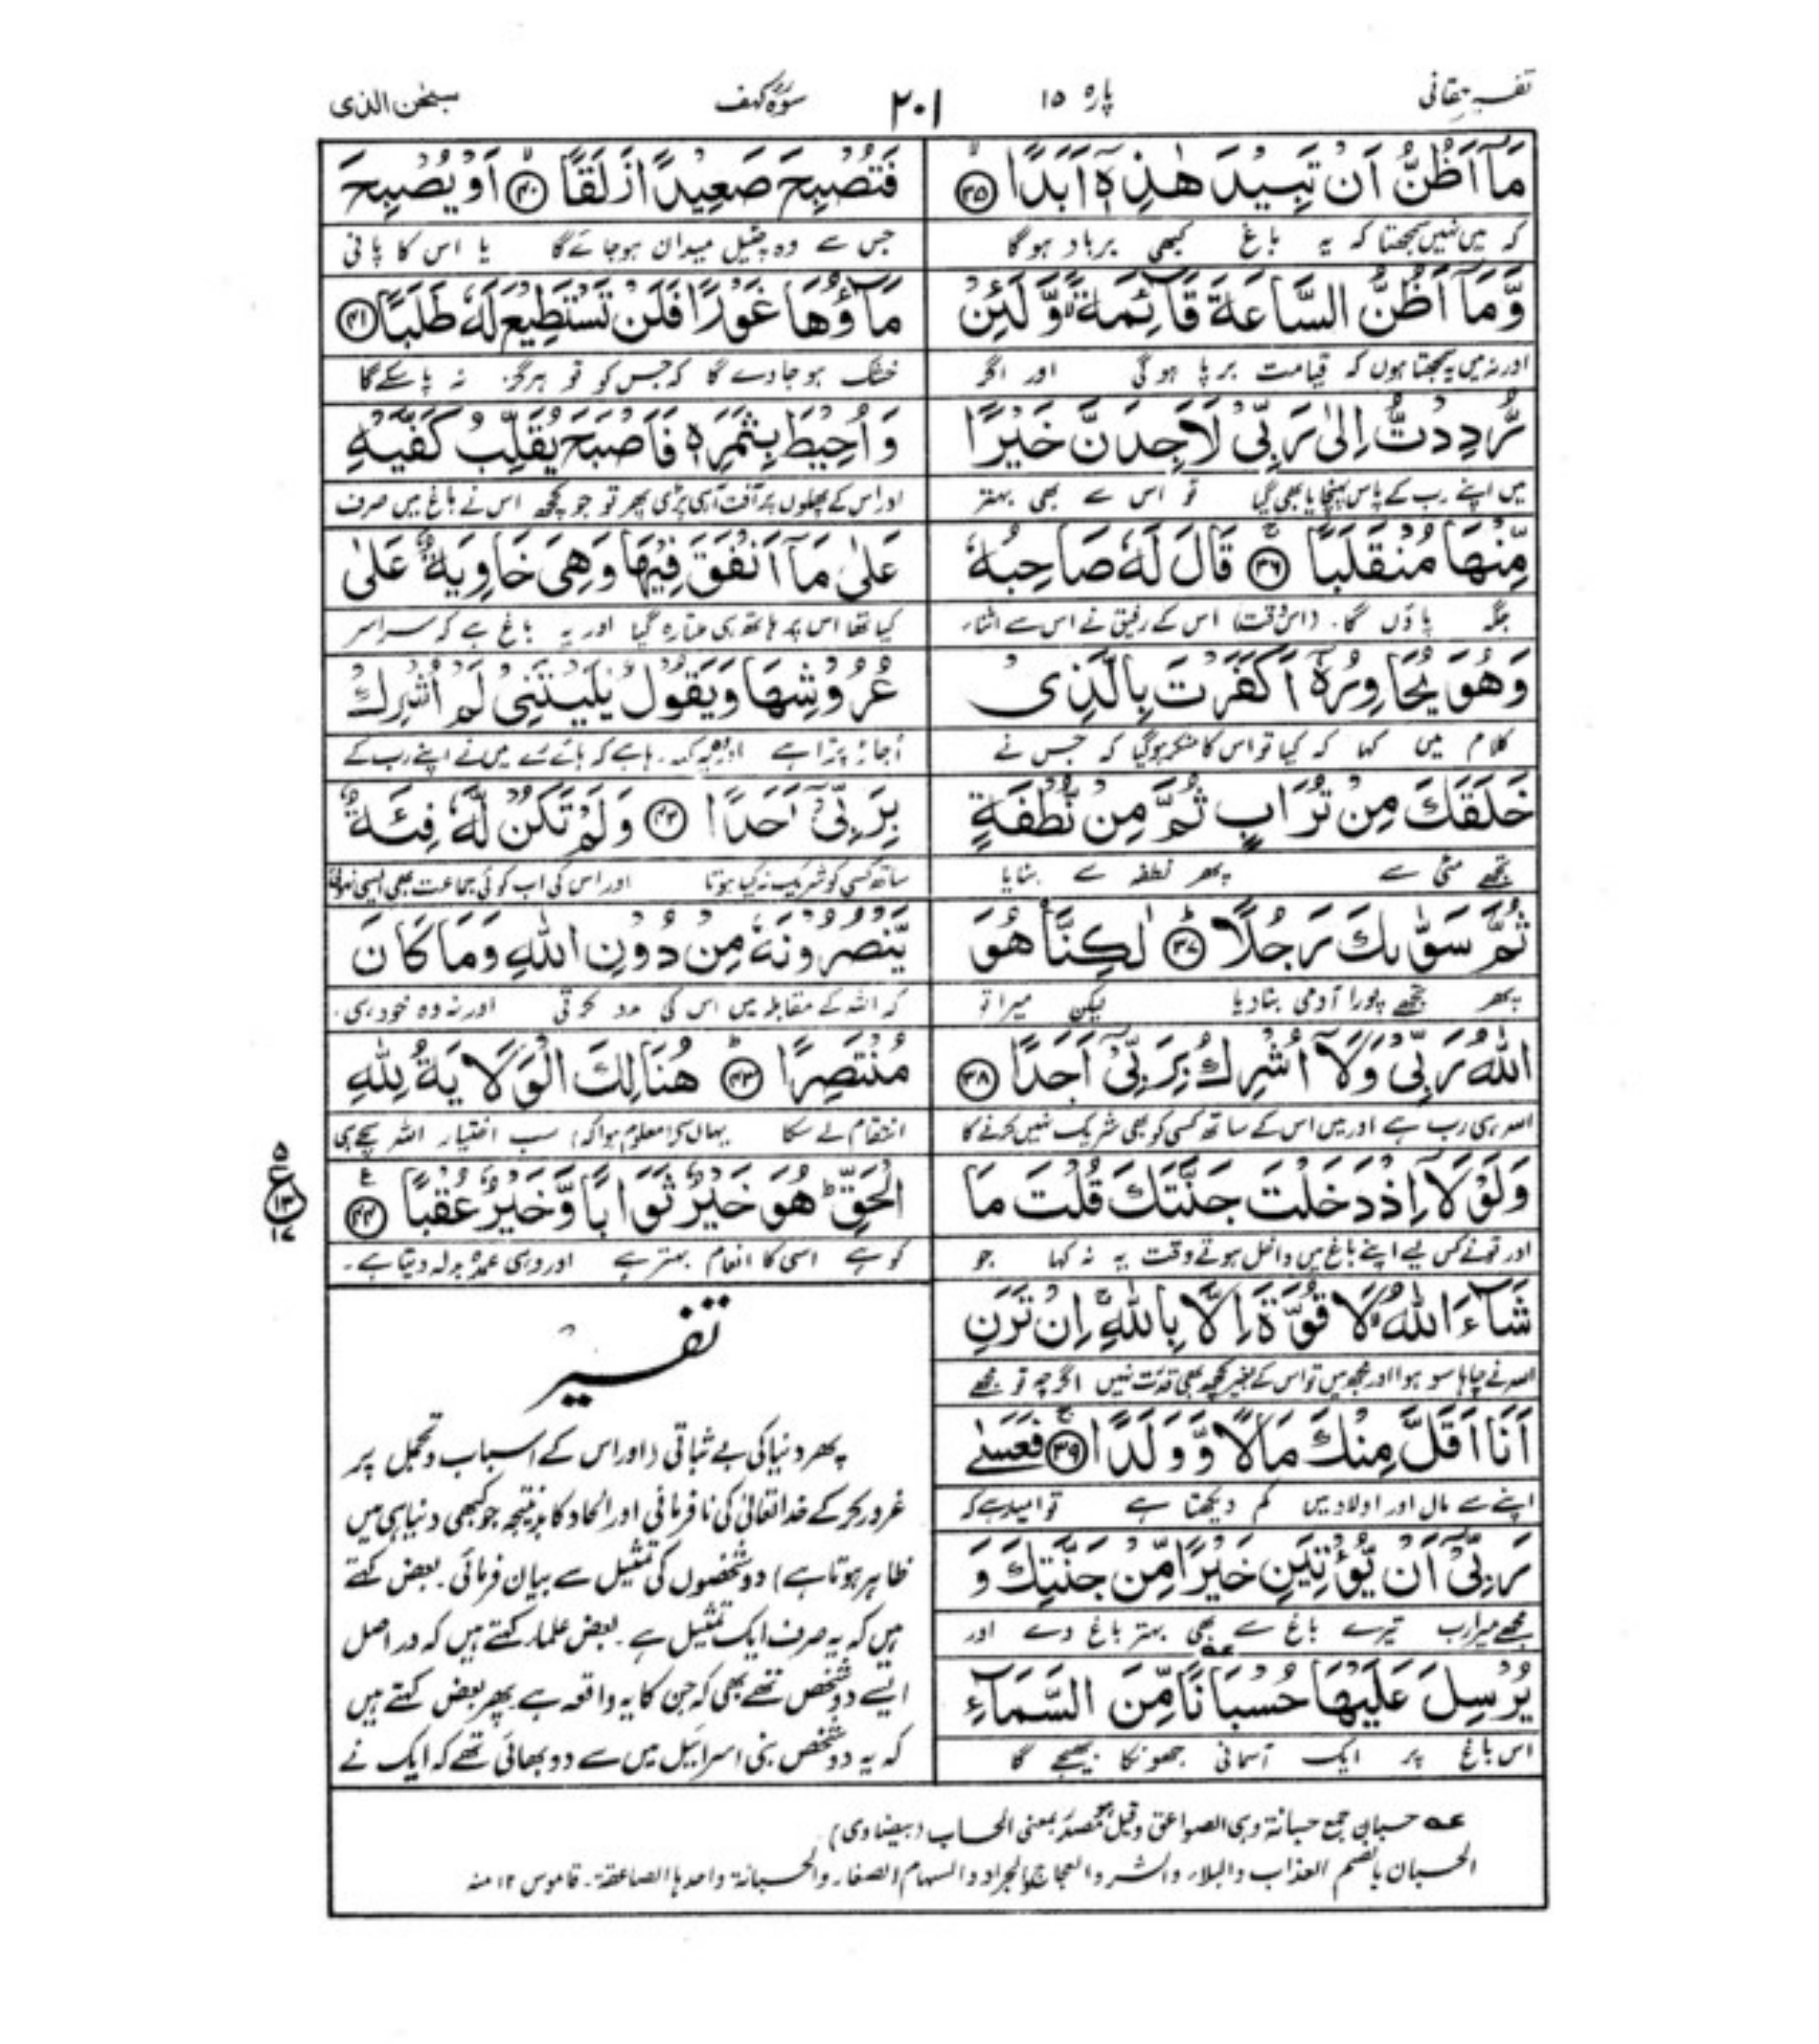 تفسیر حقانی
پارہ ۱۵
۲۰۱
سورۃ کہف
سبحٰن الذی
مَاۤ اَظُنُّ اَنْ تَبِيْدَ هٰذِهٖۤ اَبَدًا ﴿۳۵﴾
کہ میں نہیں سمجھتا کہ یہ باغ کبھی برباد ہوگا
وَّمَاۤ اَظُنُّ السَّاعَةَ قَآئِمَةً ۙ وَّلَئِنْ
اور نہ میں یہ سمجھتا ہوں کہ قیامت برپا ہوگی اور اگر
رُّدِدْتُّ اِلٰى رَبِّىْ لَاَجِدَنَّ خَيْرًا
میں اپنے رب کے پاس پہنچایا بھی گیا تو اس سے بھی بہتر
مِّنْهَا مُنْقَلَبًا ﴿۳۶﴾ قَالَ لَهٗ صَاحِبُهٗ
جگہ پاؤں گا۔ (اس وقت) اس کے رفیق نے اس سے اثناء
وَهُوَ يُحَاوِرُهٗۤ اَكَفَرْتَ بِالَّذِىْ
کلام میں کہا کہ کیا تو اس کا منکر ہوگیا کہ جس نے
خَلَقَكَ مِنْ تُرَابٍ ثُمَّ مِنْ نُّطْفَةٍ
تجھے مٹی سے پھر نطفہ سے بنایا
ثُمَّ سَوّٰىكَ رَجُلًا ﴿۳۷﴾ لٰكِنَّا۠ هُوَ
پھر تجھے پورا آدمی بنادیا لیکن میرا تو
اللّٰهُ رَبِّىْ وَلَاۤ اُشْرِكُ بِرَبِّىْۤ اَحَدًا ﴿۳۸﴾
اللہ ہی رب ہے اور میں اس کے ساتھ کسی کو بھی شریک نہیں کرنے کا
وَلَوْلَاۤ اِذْ دَخَلْتَ جَنَّتَكَ قُلْتَ مَا
اور تونے کس لیے اپنے باغ میں داخل ہوتے وقت یہ نہ کہا جو
شَآءَ اللّٰهُ ۙ لَا قُوَّةَ اِلَّا بِاللّٰهِ ۚ اِنْ تَرَنِ
اللہ نے چاہا سو ہوا اور مجھ میں تو اس کے بغیر کچھ بھی قدرت نہیں اگرچہ تو مجھے
اَنَا اَقَلَّ مِنْكَ مَالًا وَّوَلَدًا ﴿۳۹﴾ فَعَسٰى
اپنے سے مال اور اولاد میں کم دیکھتا ہے تو امید ہے کہ
رَبِّىْۤ اَنْ يُّؤْتِيَنِ خَيْرًا مِّنْ جَنَّتِكَ وَ
مجھے میرا رب تیرے باغ سے بھی بہتر باغ دے اور
يُرْسِلَ عَلَيْهَا حُسْبَانًا مِّنَ السَّمَآءِ
اس باغ پر ایک آسمانی جھونکا بھیجے گا
فَتُصْبِحَ صَعِيْدًا زَلَقًا ﴿۴۰﴾ اَوْ يُصْبِحَ
جس سے وہ چٹیل میدان ہوجائے گا یا اس کا پانی
مَآؤُهَا غَوْرًا فَلَنْ تَسْتَطِيْعَ لَهٗ طَلَبًا ﴿۴۱﴾
خشک ہوجاوے گا کہ جس کو تو ہرگز نہ پاسکے گا
وَاُحِيْطَ بِثَمَرِهٖ فَاَصْبَحَ يُقَلِّبُ كَفَّيْهِ
اور اس کے پھلوں پر آفت آہی پڑی پھر تو جو کچھ اس نے باغ میں صرف
عَلٰى مَاۤ اَنْفَقَ فِيْهَا وَهِىَ خَاوِيَةٌ عَلٰى
کیا تھا اس پر ہاتھ ہی ملتا رہ گیا اور یہ باغ ہے کہ سراسر
عُرُوْشِهَا وَيَقُوْلُ يٰلَيْتَنِىْ لَمْ اُشْرِكْ
اجاڑ پڑا ہے اور یہ کہہ رہا ہے کہ ہائے میں نے اپنے رب کے
بِرَبِّىْۤ اَحَدًا ﴿۴۲﴾ وَلَمْ تَكُنْ لَّهٗ فِئَةٌ
ساتھ کسی کو شریک نہ کیا ہوتا اور اس کی اب کوئی جماعت بھی ایسی نہ ہوئی
يَّنْصُرُوْنَهٗ مِنْ دُوْنِ اللّٰهِ وَمَا كَانَ
کہ اللہ کے مقابلہ میں اس کی مدد کرتی اور نہ وہ خود ہی
مُنْتَصِرًا ﴿۴۳﴾ هُنَالِكَ الْوَلَايَةُ لِلّٰهِ
انتقام لے سکا یہاں سے معلوم ہوا کہ سب اختیار اللہ سچے ہی
الْحَقِّ ؕ هُوَ خَيْرٌ ثَوَابًا وَّخَيْرٌ عُقْبًا ﴿۴۴﴾
کو ہے اسی کا انعام بہتر ہے اور وہی عمدہ بدلہ دیتا ہے۔
تفسیر
پھر دنیا کی بے ثباتی (اور اس کے اسباب وتجمل پر
غرور کرکے خدا تعالیٰ کی نافرمانی اور الحاد کا بدنتیجہ جو کبھی دنیا ہی میں
ظاہر ہوتا ہے) دو شخصوں کی تمثیل سے بیان فرمائی۔ بعض کہتے
ہیں کہ یہ صرف ایک تمثیل ہے۔ بعض علماء کہتے ہیں کہ دراصل
ایسے دو شخص تھے بھی کہ جن کا یہ واقعہ ہے پھر بعض کہتے ہیں
کہ یہ دو شخص بنی اسرائیل میں سے دو بھائی تھے کہ ایک نے
عہ حسبان جمع حسبانۃ وہی الصواعق وقیل مصدر بمعنی الحساب (بیضاوی)
الحسبان بالضم العذاب والبلاء والشر والعجاج والجراد والسہام الصغار والحسبانۃ واحدہا الصاعقۃ۔ قاموس ۱۲ منہ